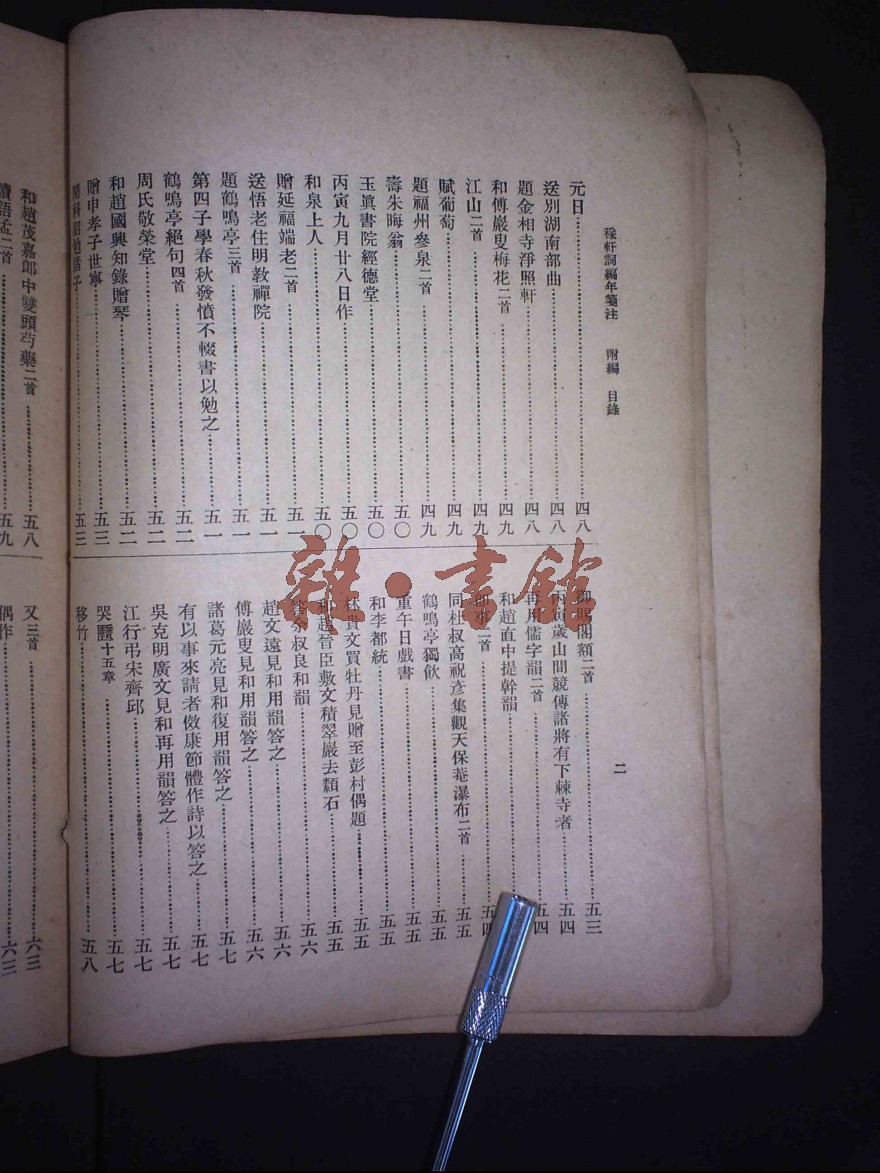 稼軒詞編年箋注　附編　目錄
二
元日……四八
送別湖南部曲……四八
題金相寺淨照軒……四八
和傅巖叟梅花二首……四九
江山二首……四九
賦葡萄……四九
題福州參泉二首……四九
壽朱晦翁……五〇
玉眞書院經德堂……五〇
丙寅九月廿八日作……五〇
和泉上人……五〇
贈延福端老二首……五一
送悟老住明教禪院……五一
題鶴鳴亭三首……五一
第四子學春秋發憤不輟書以勉之……五一
鶴鳴亭絕句四首……五二
周氏敬榮堂……五二
和趙國興知錄贈琴……五二
贈申孝子世寧……五三
子……五三
閣額二首……五三
丙寅歲山間競傳諸將有下棘寺者……五四
再用儒字韻二首……五四
和趙直中提幹韻
二首……五四
同杜叔高祝彥集觀天保菴瀑布二首……五五
鶴鳴亭獨飲……五五
重午日戲書……五五
和李都統……五五
林貴文買牡丹見贈至彭村偶題……五五
和趙晉臣敷文積翠巖去纇石……五五
答余叔良和韻……五六
趙文遠見和用韻答之……五六
傅巖叟見和用韻答之……五六
諸葛元亮見和復用韻答之……五七
有以事來請者傚康節體作詩以答之……五七
吳克明廣文見和再用韻答之……五七
江行弔宋齊邱……五七
哭𩅰十五章……五七
移竹……五八
和趙茂嘉郎中雙頭芍藥二首……五八
讀語孟二首……五九
又三首……六三
偶作……六三
雜·書館